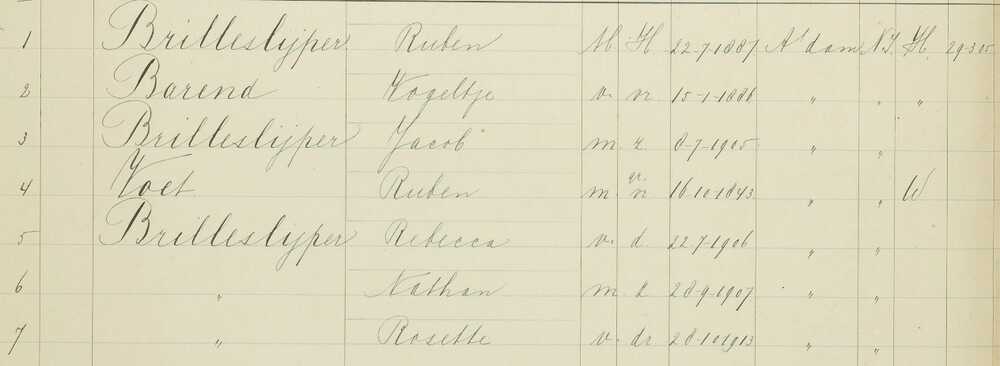 1 Brilleslijper Ruben M. H. 22-7-1887 A'dam N.I. H. 29-3-05
2 Barend Vogeltje v. vr. 15-1-1886 " " "
3 Brilleslijper Jacob m. z. 8-7-1905 " "
4 Voet Ruben m. gr. v. 16-10-1843 " " W
5 Brilleslijper Rebecca v. d. 22-7-1906 " "
6 " Nathan m. z. 28-9-1907 " "
7 " Rosette v. dr. 28-10-1913 " "